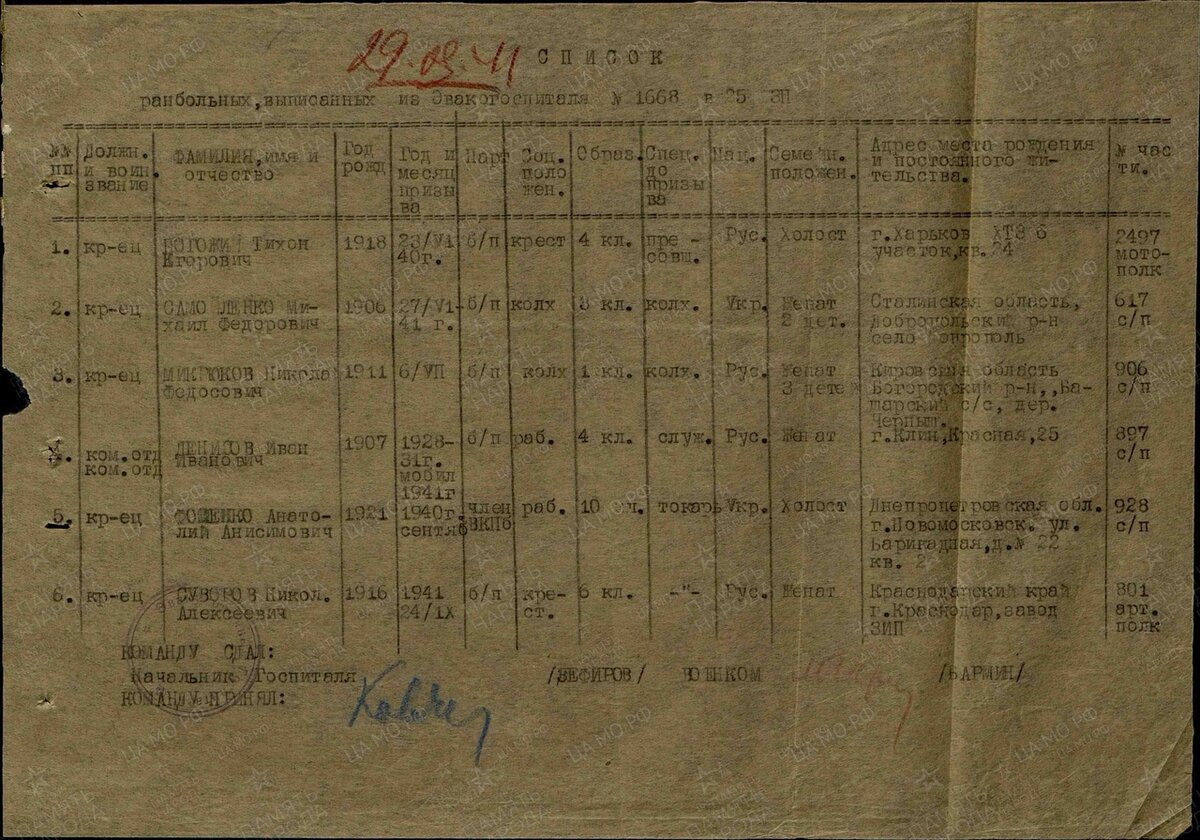 29.09.41
СПИСОК
ранбольных, выписанных из Эвакогоспиталя № 1668 в 25 ЗП
№№ пп Должн. и воин. звание ФАМИЛИЯ, имя и отчество Год рожд Год и месяц призы ва Парт Соц. поло жен. Образ. Спец. до призы ва Нац. Семейн. положен. Адрес места рождения и постоянного жи- тельства. № час ти.
1. кр-ец Тихон Егорович 1918 23/VI 40г. б/п крест 4 кл. пре - совщ. Рус. Холост г.Харьков ХТЗ 6 участок, кв. 24 2497 мото- полк
2. кр-ец САМОЙЛЕНКО Ми- хаил Федорович 1906 27/VI- 41 г. б/п колх 3 кл. колх. Укр. Женат 2 дет. Сталинская область, Добропольский р-н село 617 с/п
3. кр-ец МИКРЮКОВ Никола Федосович 1911 6/УП б/п колх 1 кл. колх. Рус. Женат 3 дете Кировская область Богородский р-н,,Ба- шарский с/с, дер. Черныш. 906 с/п
4. ком.отд ком.отд ДЕНИСОВ Иван Иванович 1907 1928- 31г. мобил 1941г б/п раб. 4 кл. служ. Рус. Женат г.Клин,Красная,25 897 с/п
5. кр-ец ФОМЕНКО Анато- лий Анисимович 1921 1940г. сентяб член ВКПб раб. 10 кл. токарь Укр. Холост Днепропетровская обл. г.Новомосковск. ул. Барикадная,д.№ 22 кв. 2 928 с/п
6. кр-ец СУВОРОВ Никол. Алексеевич 1916 1941 24/IX б/п кре- ст. 6 кл. -"- Рус. Женат Краснодарский край г.Краснодар,завод ЗИП 801 арт. полк
КОМАНДУ СДАЛ:
Начальник Госпиталя /ЗЕФИРОВ/ ВОЕНКОМ /БАРМИН/
КОМАНДУ ПРИНЯЛ:
ЦА МО РФ
ПАМЯТЬ НАРОДА